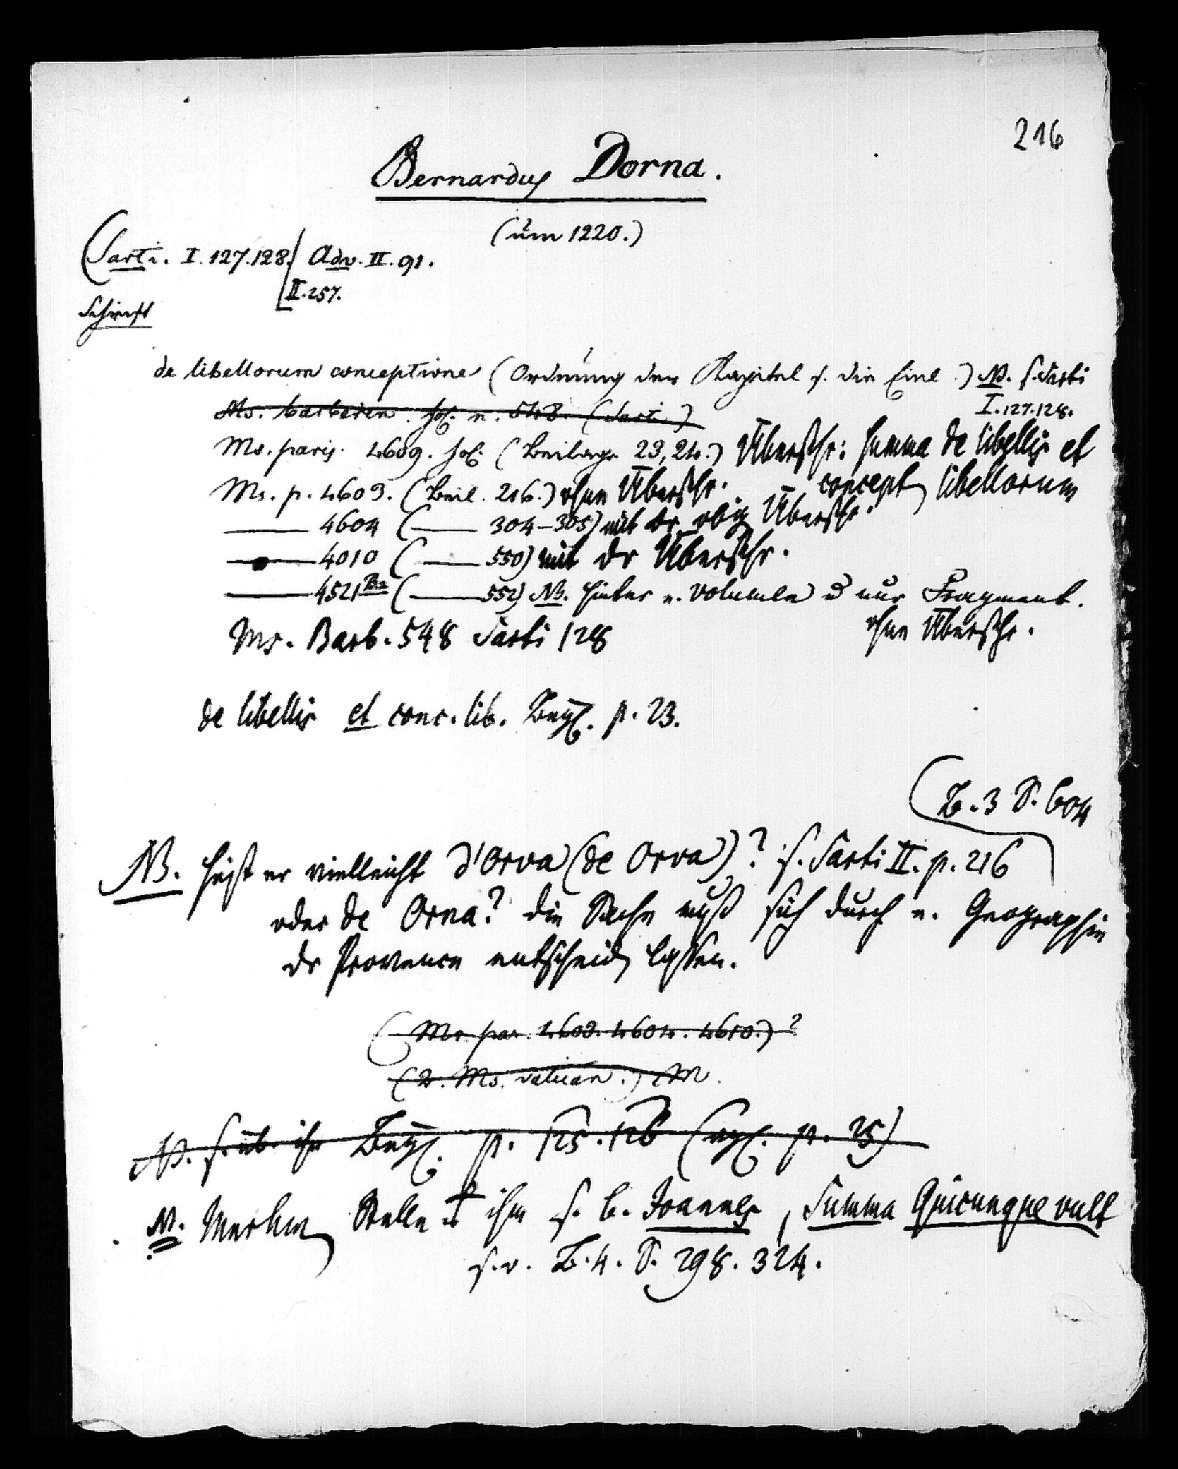 216
Bernardus Dorna.
(um 1220.)
(Sarti. I. 127.128. Adv. II. 91.
II. 257.
Schrift
de libellorum conceptione (Ordnung der Kapitel s. die Einl.) NB. s. Sarti
I. 127.128.
Ms. barberin. jur. n. 548. (Sarti)
Ms. paris. 4609. (Beilage 23, 24.) Überschr: summa de libellis et
concept libellorum
Ms. p. 4603. (Beil. 216.) ohne Überschr.
4604 ( 304-305) mit der obig Überschr.
4010 ( 550) mit der Überschr.
4521 ( 552) NB. hinter volumen 3 nur Fragment.
ohne Überschr.
Ms. Barb. 548 Sarti 128
de libellis et conc. lib. p. 23.
(B. 3 S. 604
NB. heißt er vielleicht d'Orva (de Orva)? s. Sarti II. p. 216
oder de Orna? die Sache muß sich durch e. Geographie
der Provence entscheiden lassen.
(Ms. par. 4603. 4604. 4610.)?
(2. Ms. vatican.)
NB. s. üb. ihn p. 125.126 p. 25)
NB. Merkw Stelle üb ihn s. b. Joannes, Summa Quicunque vult
s. o. B. 4. S. 298. 324.